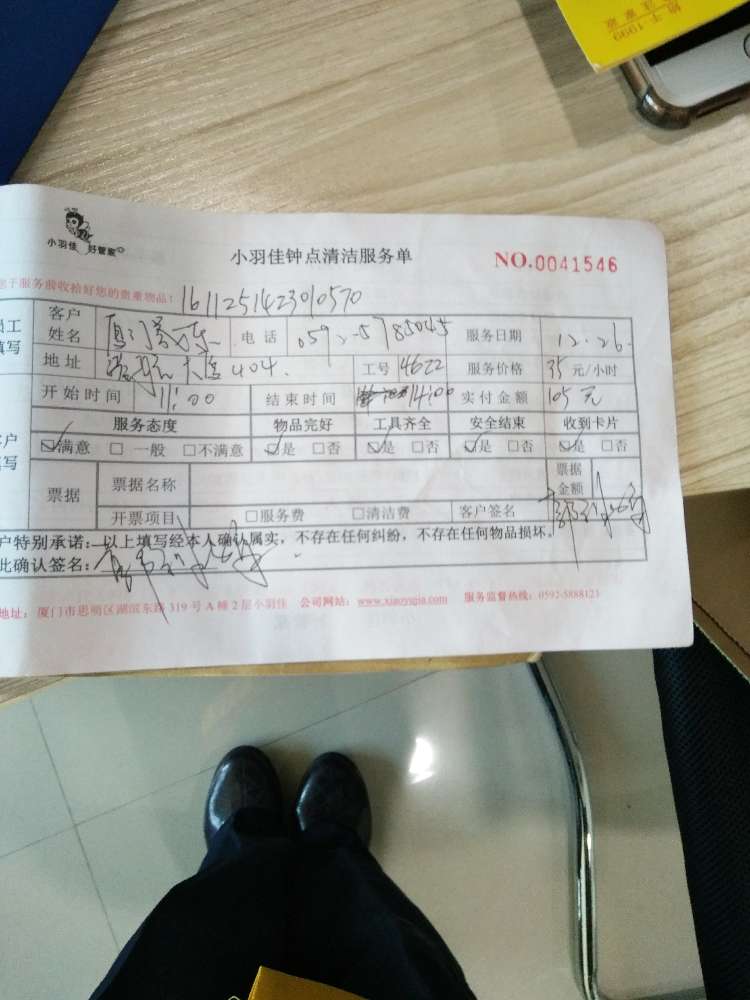 小羽佳 好管家
小羽佳钟点清洁服务单
NO.0041546
于服务前收拾好您的贵重物品!
1611251423010570
员工
填写
客户
姓名
电话 0592-5785045
服务日期 12.26
地址 大厦404.
工号 4622
服务价格 35 元/小时
开始时间 11:00
结束时间 14:00
实付金额 105元
服务态度 物品完好 工具齐全 安全结束 收到卡片
客户
填写
☑满意 □ 一般 □不满意 ☑是 □否 ☑是 □否 ☑是 □否 ☑是 □否
票据
票据名称
票据
金额
开票项目 □服务费 □清洁费 客户签名
户特别承诺:以上填写经本人确认属实,不存在任何纠纷,不存在任何物品损坏。
此确认签名:
地址:厦门市思明区湖滨东路 319 号 A 幢 2 层小羽佳 公司网站:www.xiaoyujia.com 服务监督热线:0592-5888123